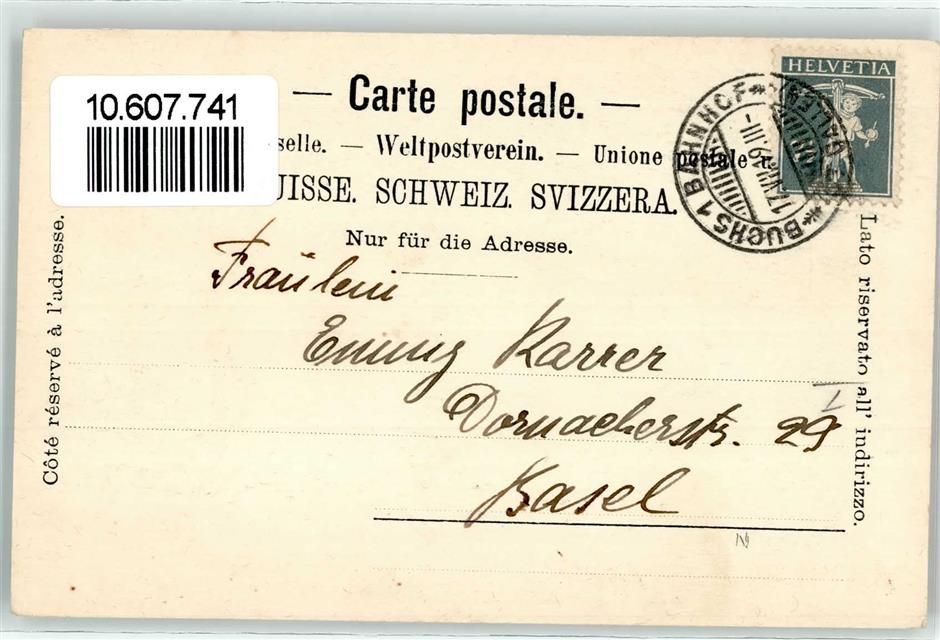 10.607.741
— Carte postale. —
selle. — Weltpostverein. — Unione postale u
UISSE. SCHWEIZ. SVIZZERA.
Nur für die Adresse.
HELVETIA
BUCHS 1 BAHNHOF
Côté réservé à l'adresse.
Lato riservato all' indirizzo.
Fräulein
Emmy Karrer
Dornacherstr. 29
Basel